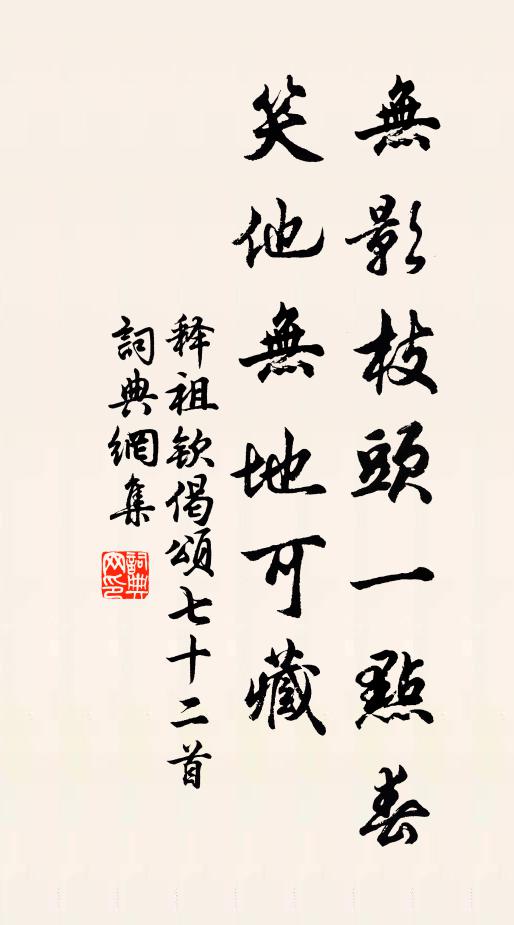 無影枝頭一點春
笑他無地可藏
释祖欽偈頌七十二首
詞典網集
詞典網印